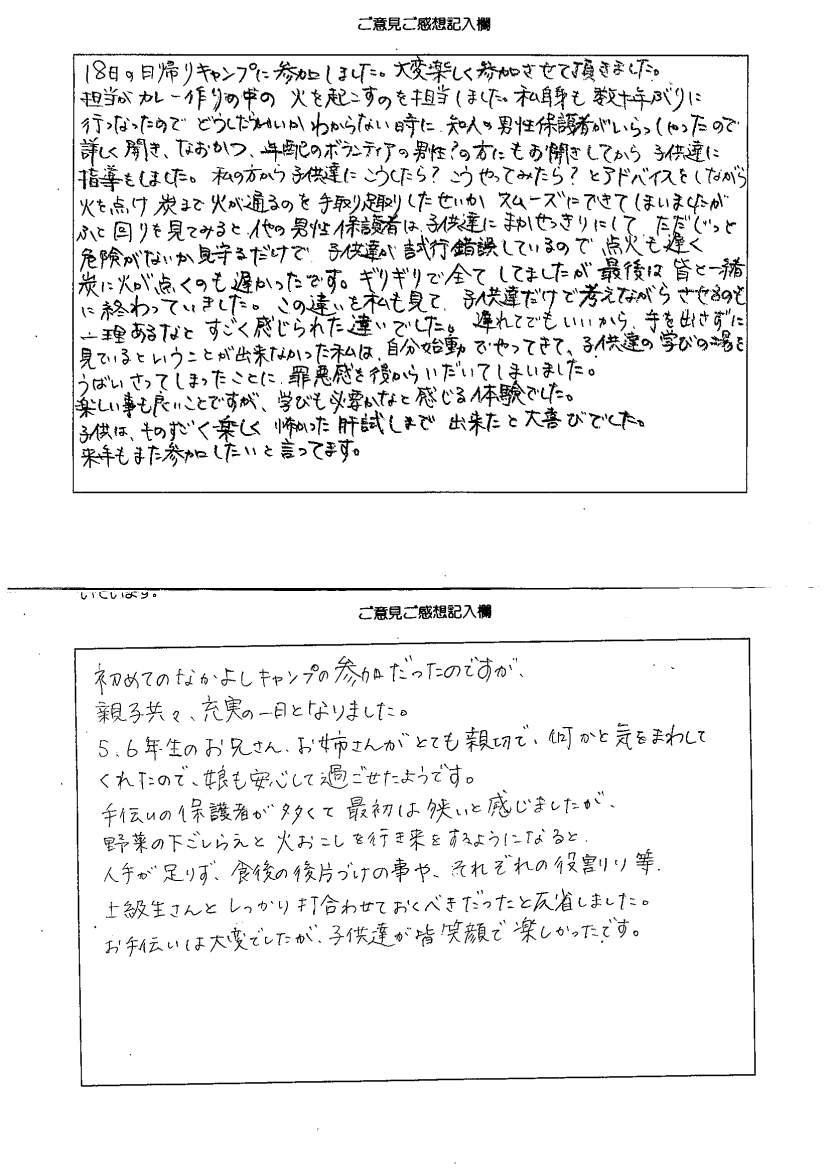 ご意見ご感想記入欄
18日の日帰りキャンプに参加しました。大変楽しく参加させて頂きました。
担当がカレー作りの中の 火を起こすのを担当しました。私自身も数十年ぶりに
行なったので どうしたらいいかわからない時に、知人の男性保護者がいらっしゃったので
詳しく聞き、なおかつ、年配のボランティアの男性?の方にもお聞きしてから 子供達に
指導もしました。 私の方から子供達にこうしたら? こうやってみたら? とアドバイスをしながら
火を点け 炭まで 火が通るのを 手取り足取りしたせいか スムーズにできてしまいましたが
ふと回りを見てみると 他の男性保護者は、子供達にまかせっきりにして、ただじっと
危険がないか見守るだけで、子供達が試行錯誤しているので 点火も遅く
炭に火が点くのも遅かったです。ギリギリで全てしてましたが最後は皆と一緒
に終わっていました。この違いを私も見て、子供達だけで考えながらさせるのも
一理あるなと すごく感じられた違いでした。遅れてでもいいから、手を出さずに
見ているということが出来なかった私は、自分始動でやってきて、子供達の学びの場を
うばいさってしまったことに、罪悪感を後からいだいてしまいました。
楽しい事も良いことですが、学びも必要かなと感じる体験でした。
子供は、ものすごく楽しく 怖かった肝試しまで 出来たと大喜びでした。
来年もまた参加したいと言ってます。
ていいます。
ご意見ご感想記入欄
初めてのなかよしキャンプの参加だったのですが、
親子共々、充実の一日となりました。
5、6年生のお兄さん、お姉さんがとても親切で、何かと気をまわして
くれたので、娘も安心して過ごせたようです。
手伝いの保護者が多くて 最初は狭いと感じましたが、
野菜の下ごしらえと 火おこしを行き来をするようになると、
人手が足りず、食後の後片づけの事や、それぞれの役割り等、
上級生さんと しっかり打合わせておくべきだったと反省しました。
お手伝いは大変でしたが、子供達が皆笑顔で楽しかったです。